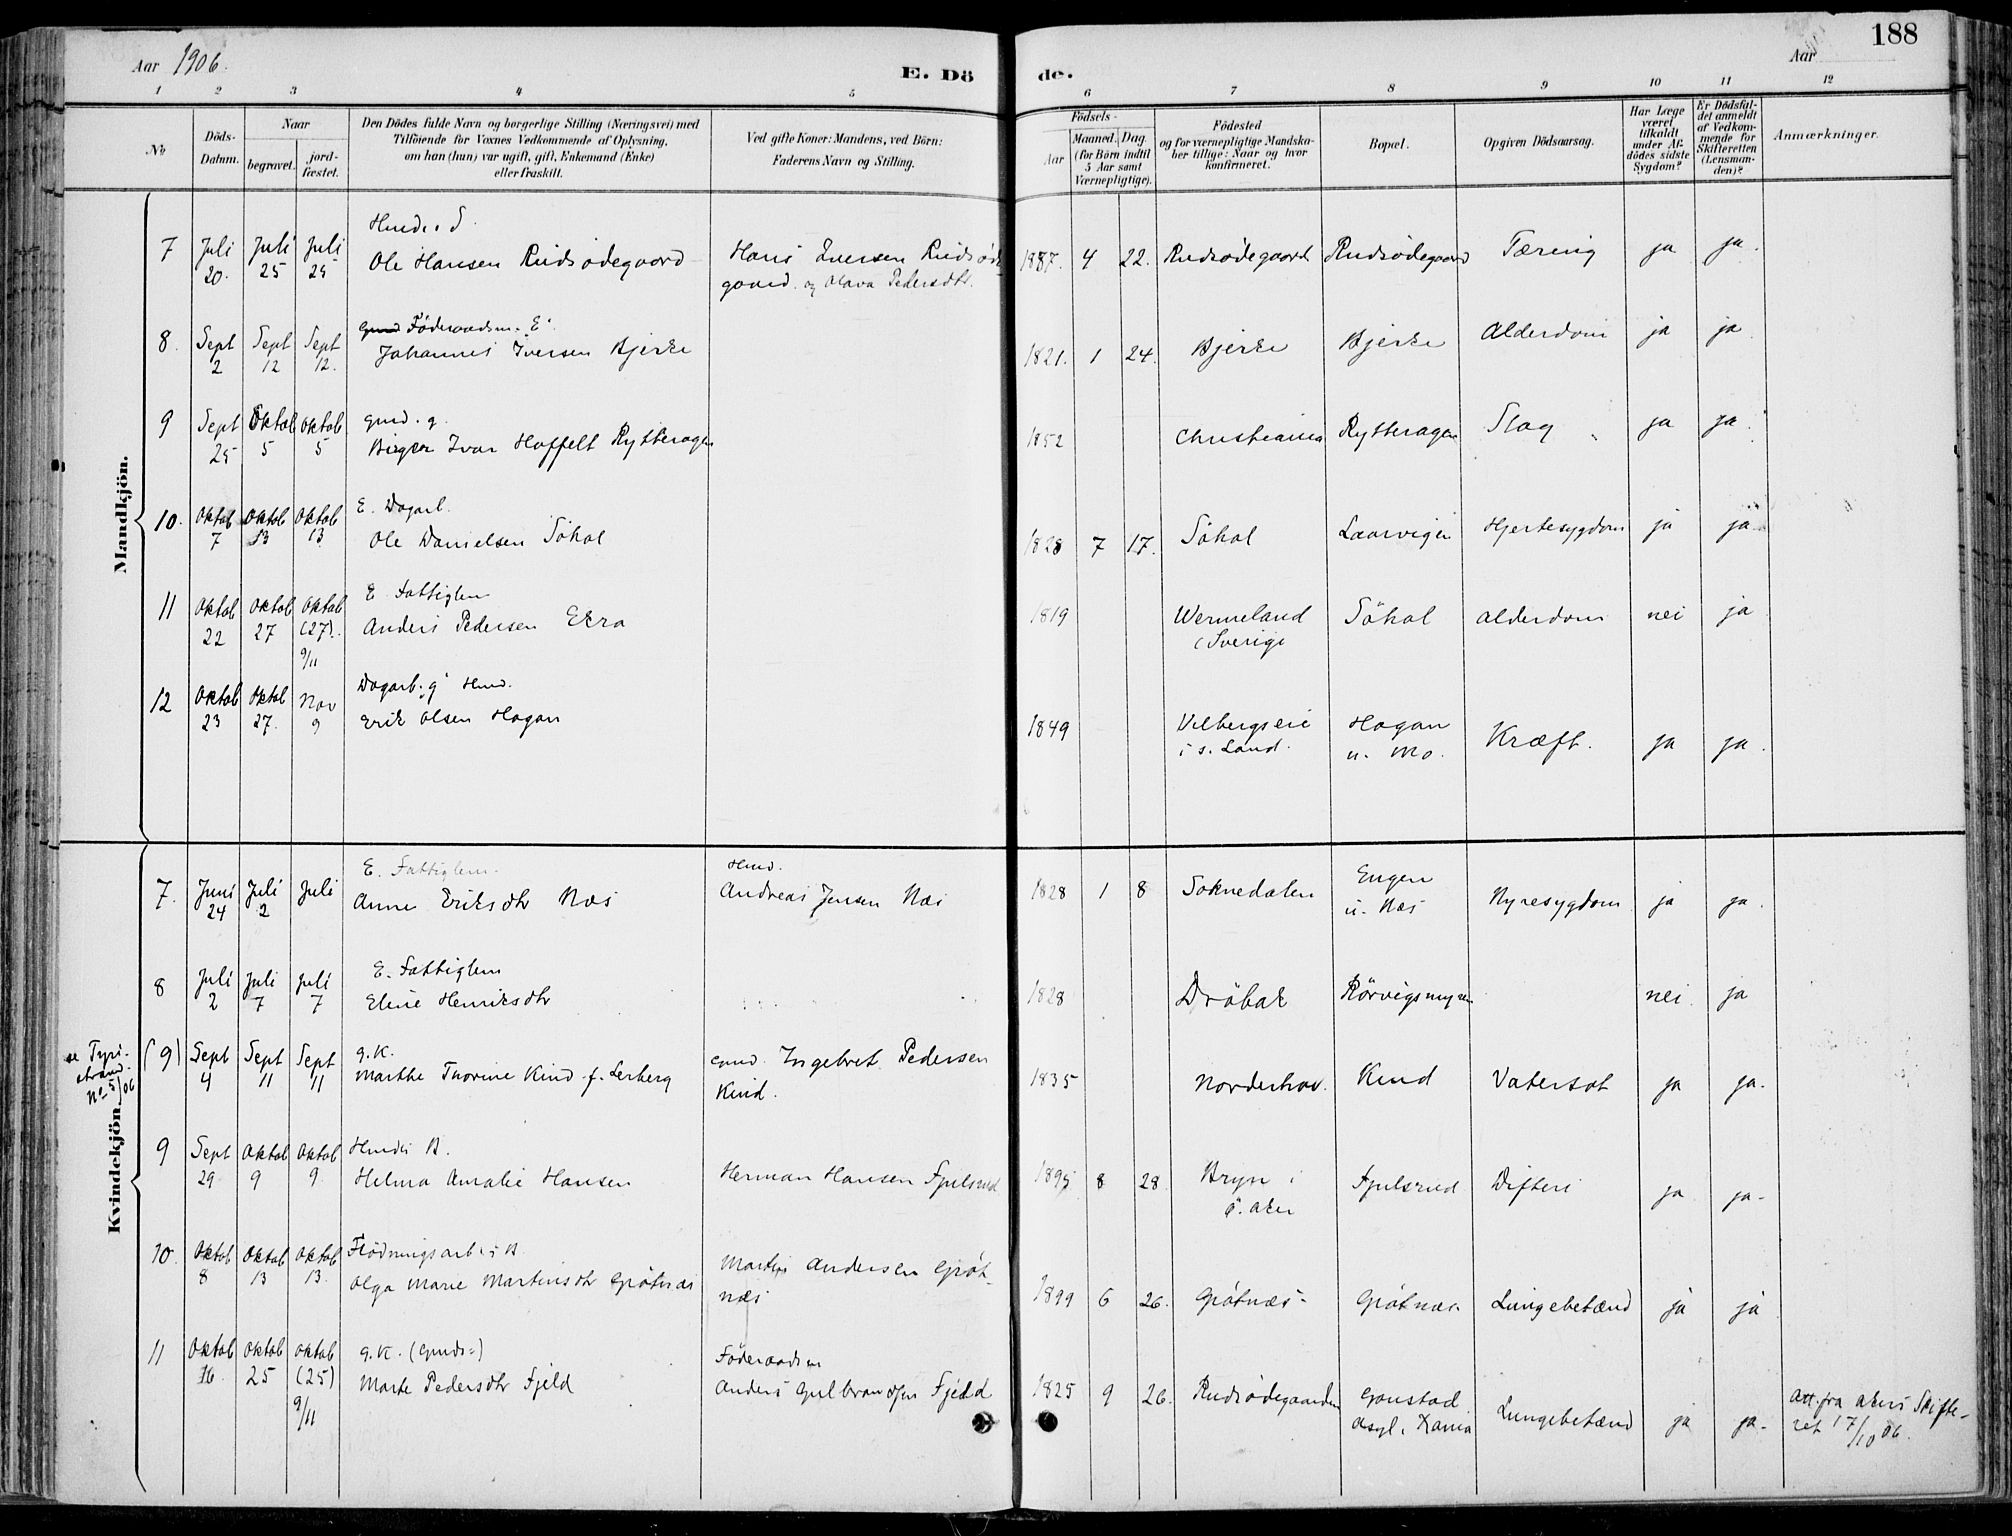 Aar 1906.
E. Dö
de.
Aar
188
1 2 3 4 5 6 7 8 9 10 11 12
No
Döds-Datum.
Naar
begravet.
jord-fæstet.
Den Dödes fulde Navn og borgerlige Stilling (Næringsvei) med
Tilföiende for Voxnes Vedkommende af Oplysning,
om han (hun) var ugift, gift, Enkemand (Enke)
eller fraskilt.
Ved gifte Koner: Mandens, ved Börn:
Faderens Navn og Stilling.
Födsels-
Aar
Maaned. Dag.
(for Börn indtil
5 Aar samt
Værnepligtige).
Födested
og for værnepligtige Mandska-
ber tillige: Naar og hvor
konfirmeret.
Bopæl.
Opgiven Dödsaarsag.
Har Læge
været
tilkaldt
under Af-
dödes sidste
Sygdom?
Er Dödsfal-
det anmeldt
af Vedkom-
mende for
Skifteretten
(Lensman-
den)?
Anmærkninger.
Mandkjön.
Hmds. S.
7 Juli 20. Juli 25 Juli 25 Ole Hansen Rudsødegaard Hans Iversen Rudsøde
gaard. og Olava Pedersdtr. 1887. 4 22. Rudsødegaard Rudsødegaard Tæring ja ja.
Gmd Föderaadsm. E.
8. Sept 2 Sept 12 Sept 12. Johannes Iversen Bjerke 1821. 1 24. Bjerke Bjerke Alderdom ja ja.
gmd. g.
9 Sept 25 Oktob 5 Oktob 5 Birger Ivar Hoffelt Rytteragen 1852 Christiania Rytteragen Slag ja ja.
E. Dagarb.
10. Oktob 7 Oktob 13 Oktob 13 Ole Danielsen Søhol 1828 7 17. Søhol Laarvigen Hjertesygdom ja ja.
E. Fattiglem
11 Oktob 22 Oktob 27 Oktob (27). 9/11 Anders Pedersen Ekra 1819 Wermeland
i Sverige Søhol Alderdom nei ja
Dagarb. g. Hmd.
12 Oktob 23 Oktob 27. Nov 9 Erik Olsen Hagan 1849 Velbergseie
i s. Land. Hagan
u. Mo. Kræft. ja ja.
Kvindekjön.
E. Fattiglem.
7. Juni 24 Juli 2 Juli Anne Eriksdtr Næs Hmd.
Andreas Jensen Næs 1828 1 8 Soknedalen Engen
u. Næs Nyresygdom ja ja.
E. Fattiglem
8 Juli 2 Juli 7 Juli 7 Eline Henriksdtr 1828 Drøbak Rørvigsmyren nei ja
se Tyri-
strand
No 5/06
(9) Sept 4 Sept 11 Sept 11 g.K.
Marthe Thorine Kind f. Lerberg Gmd. Ingebret Pedersen
Kind. 1835 Norderhov. Kind Vatersot ja ja.
Hmds B.
9 Sept 29 Oktob 9 Oktob 9. Helma Amalie Hansen Herman Hansen Fjulsrud 1895 8 28 Bryn i
Ö. Aker Fjulsrud Difteri ja ja.
Flødningsarb.s B.
10. Oktob 8 Oktob 13 Oktob 13. Olga Marie Martinsdtr Grøtnæs Martin Andersen Grøt-
næs 1899 6 26. Grøtnæs Grøtnæs Lungebetænd ja ja
g.K. (Gmds)
11 Oktob 16. Oktob 25 Oktob (25) 9/11 Marte Pedersdtr Fjeld Föderaadsm
Anders Gulbrandsen Fjeld 1825 9 26. Rudsødegaarden Gaustad
asyl. Xania Lungebetænd ja ja. Att. fra Akers Skifte-
ret 17/10 06.